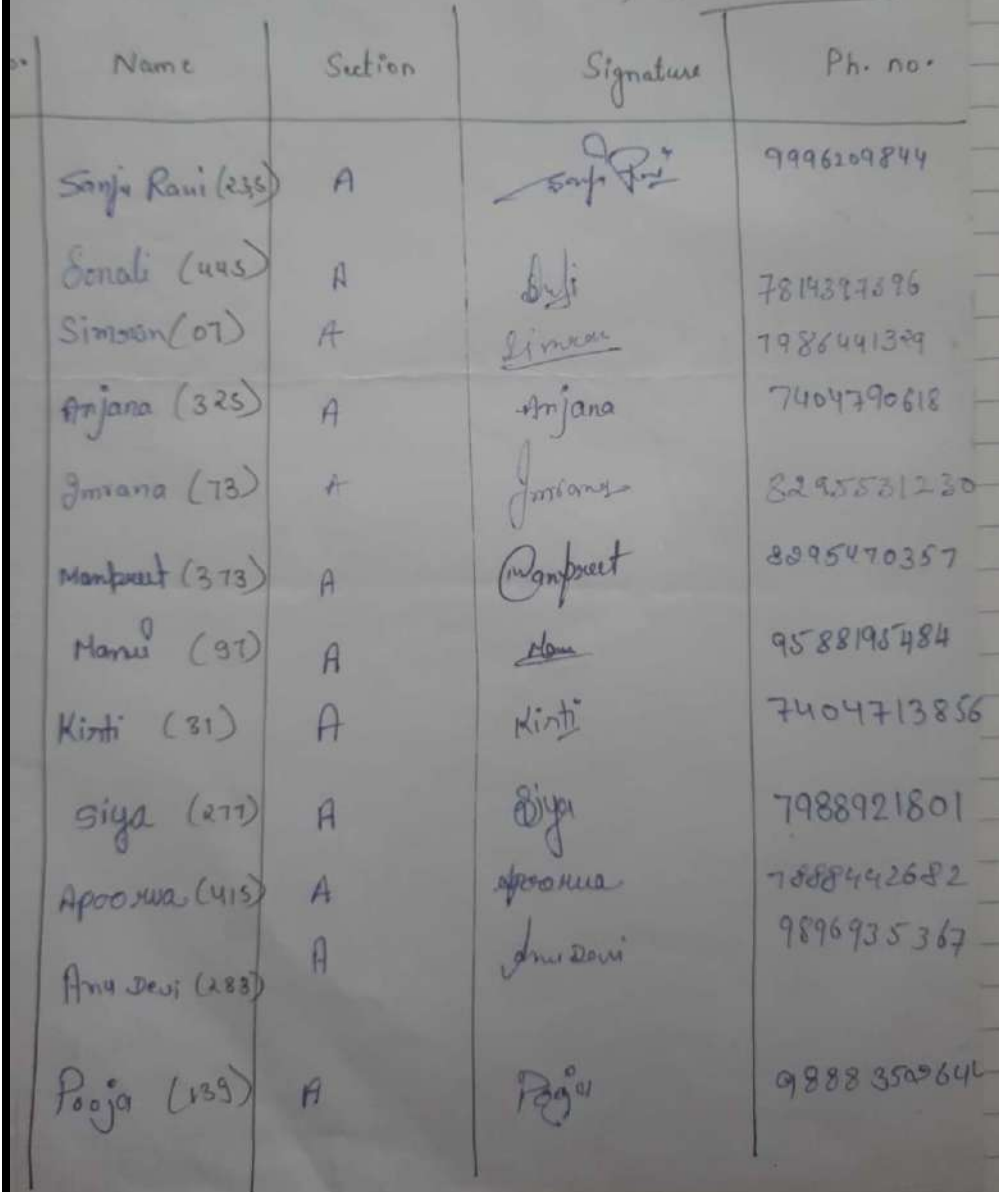 Name Section Signature Ph. no.
Sanju Rani (235) A Sanju Rani 9996209844
Sonali (445) A 7814397396
Simran (07) A Simran 7986441329
Anjana (325) A Anjana 7404790618
Imrana (73) A Imrana 8295531230
Manpreet (373) A Manpreet 8295470357
Manvi (97) A Manu 9588195484
Kirti (31) A Kirti 7404713856
Siya (277) A Siya 7988921801
Apoorva (415) A Apoorva 7888442682
Anu Devi (283) A Anu Devi 9896935367
Pooja (139) A Pooja